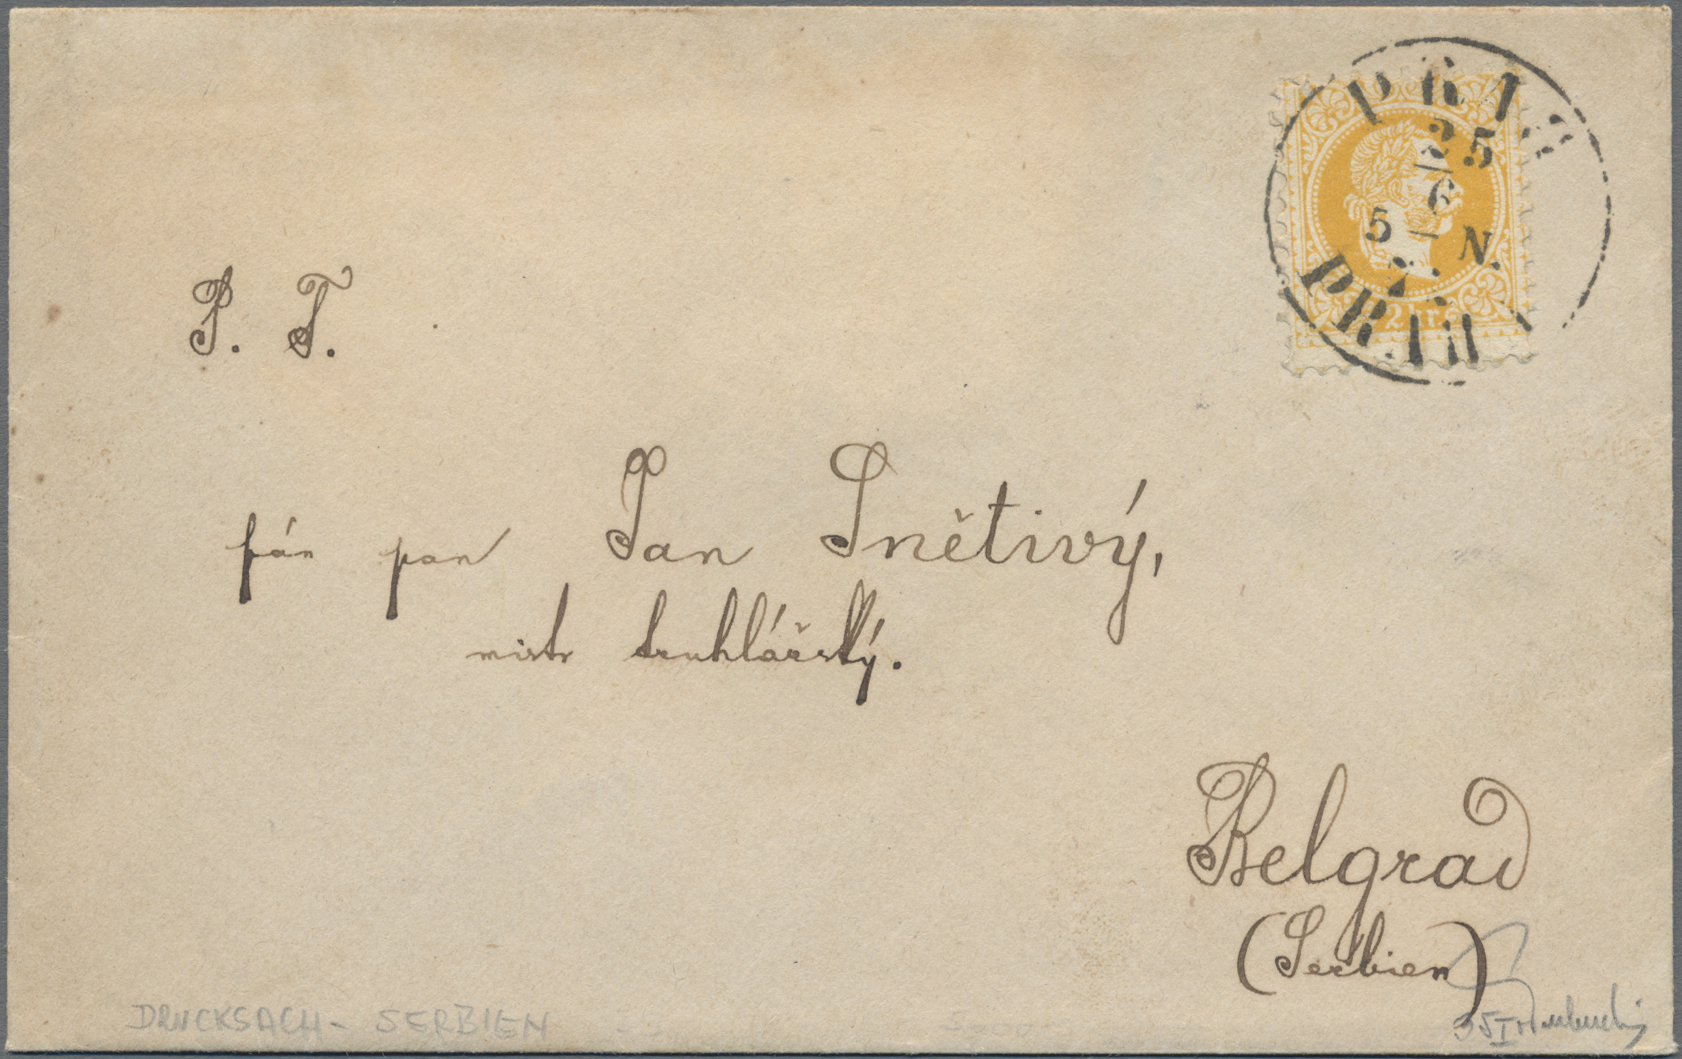 PRAG
25
6
5 N.
PRAH
2 kr
P. T.
pán pan Jan Snětivý,
mistr truhlářský.
Belgrad
(Serbien)
DRUCKSACH - SERBIEN